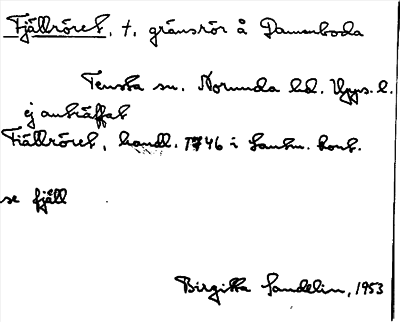 Fjällröret, †, gränsrör å Dansarboda
Tensta sn. Norunda hd. Upps. l.
ej anträffat
Fiällröret, handl. 1746 i Lantm. kont.
se fjäll
Birgitta Sandelin, 1953